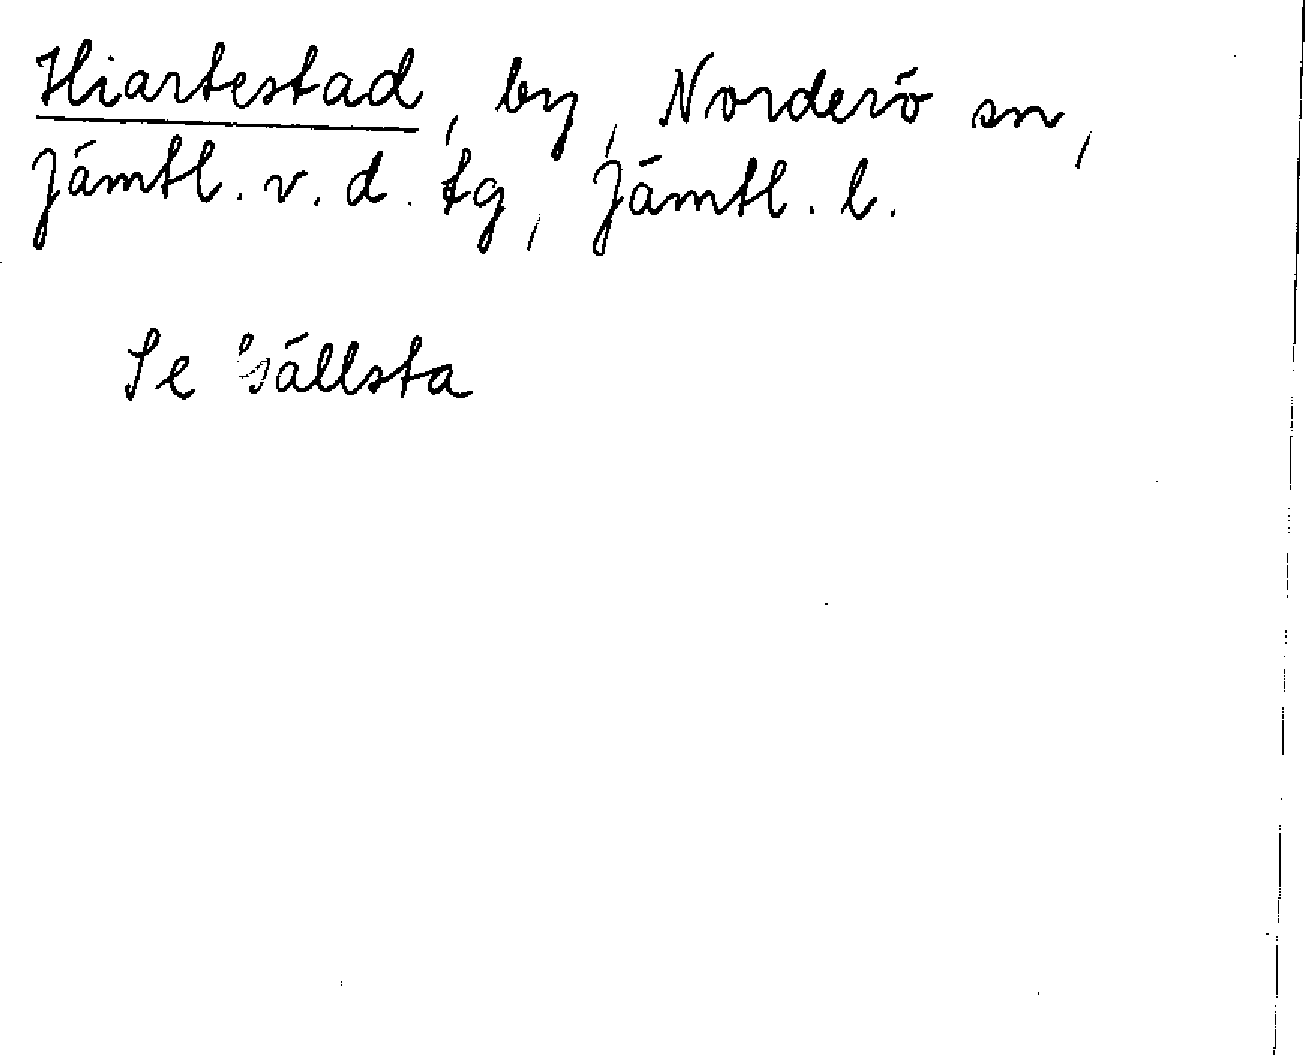 Hiartestad, by, Norderö sn,
Jämtl. v. d. tg, Jämtl. l.
Se Sällsta